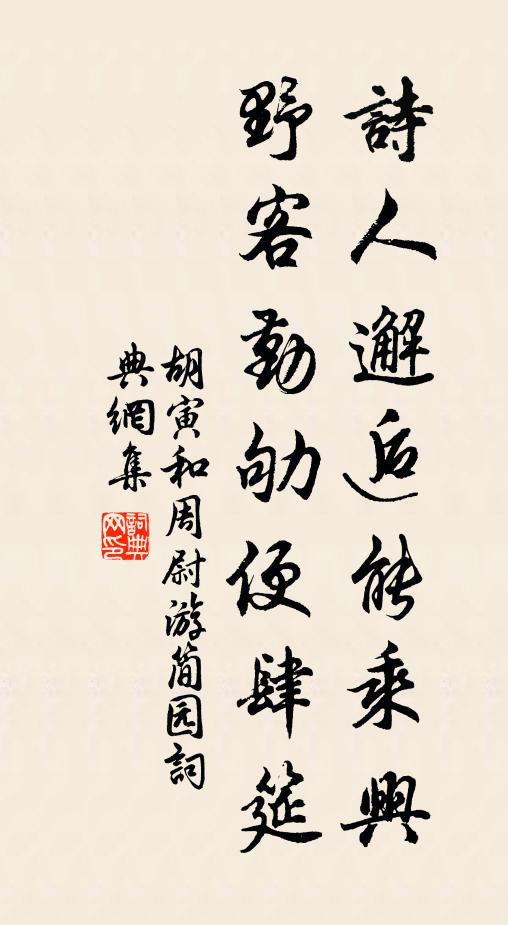 詩人邂逅能乘興
野客勤劬便肆筵
胡寅和周尉游简园詞
典網集
詞典網印